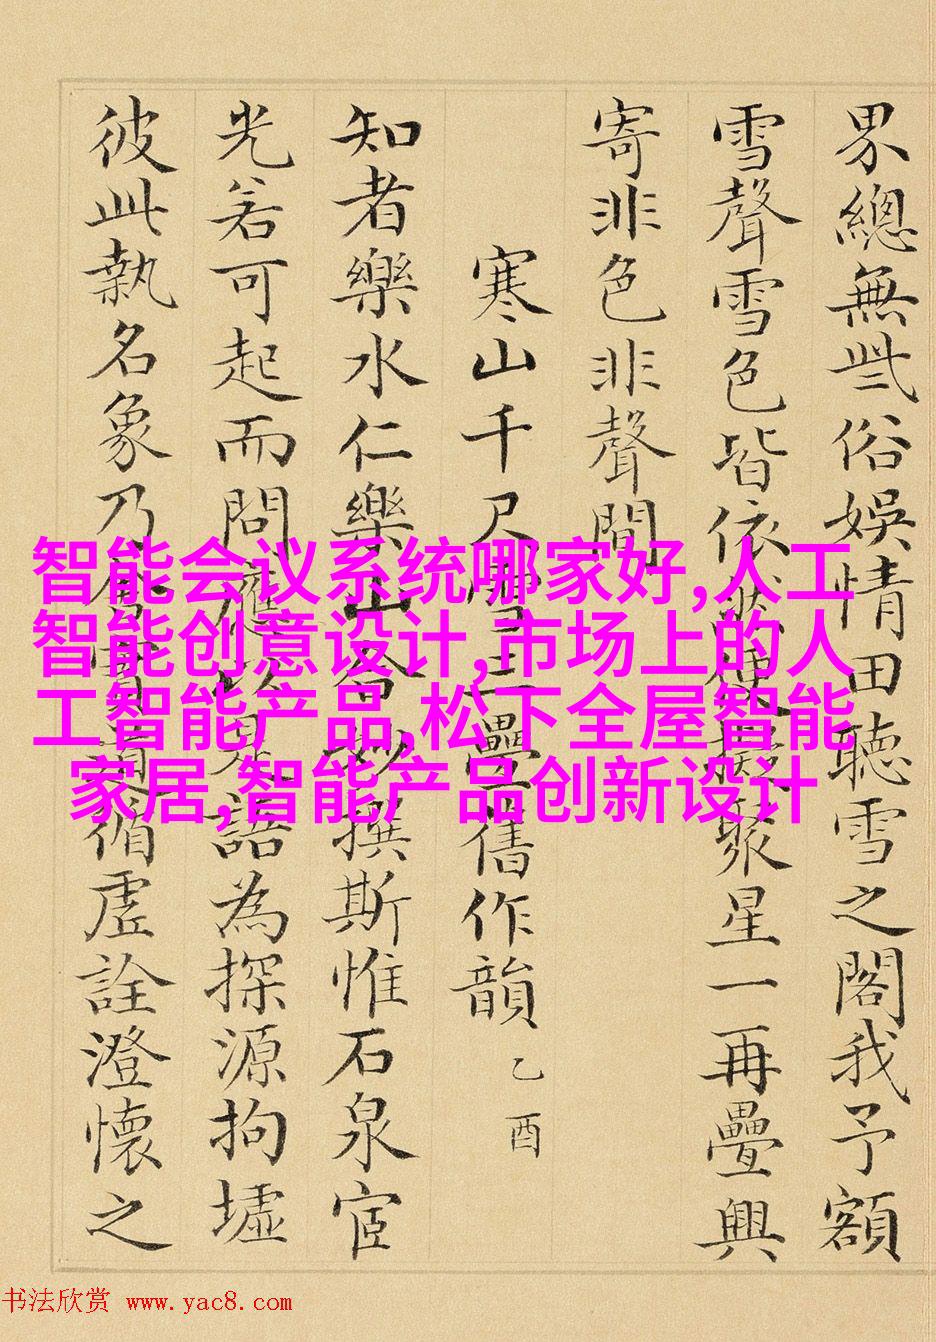 界總無些俗娛情田聽雪之閣我予額
雪聲雪色皆依擬聚星一再疊興
寄非色非聲間
寒山千尺雪三疊舊作韻 乙酉
知者樂水仁樂山撰斯惟石泉宦
光若可起而問應見語為探源拘墟
彼此執名象乃循虛詮澄懷之
智能会议系统哪家好,人工
智能创意设计,市场上的人
工智能产品,松下全屋智能
家居,智能产品创新设计
书法欣赏 www.yac8.com